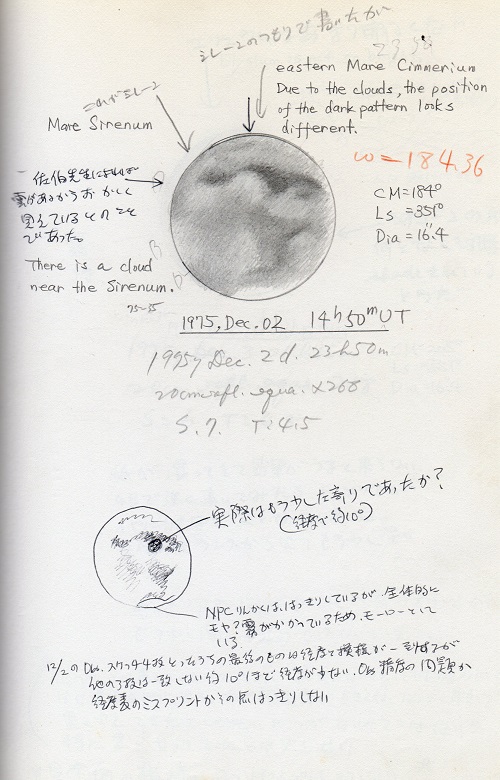 シレーンのつもりで書いたが
23.38
eastern Mare Cimmerium
Due to the clouds, the position
of the dark pattern looks
different.
これがシレーン
Mare Sirenum
ω=184.36
佐伯先生によれば
雲があるからおかしく
見えているとのこと
であった。
CM=184°
Ls =351°
Dia =16".4
There is a cloud
near the Sirenum.
75-55
1975, Dec. 02 14h50mUT
1975y Dec. 2d. 23h50m
20cm refl. equa. ×266
S. 7. T: 4.5
実際はもう少し左寄りであったか?
(経度で約10°)
NPCりんかくは、はっきりしているが 全体的に
モヤ?霧がかかっているため、モーローとして
いる.
12/2の スケッチ4枚とったうちの最后のものは経度と模様が一致するが
他の3枚は一致しない 約10°ほど経度が少ない. 精度の問題か
経度表のミスプリントかその点はっきりしない